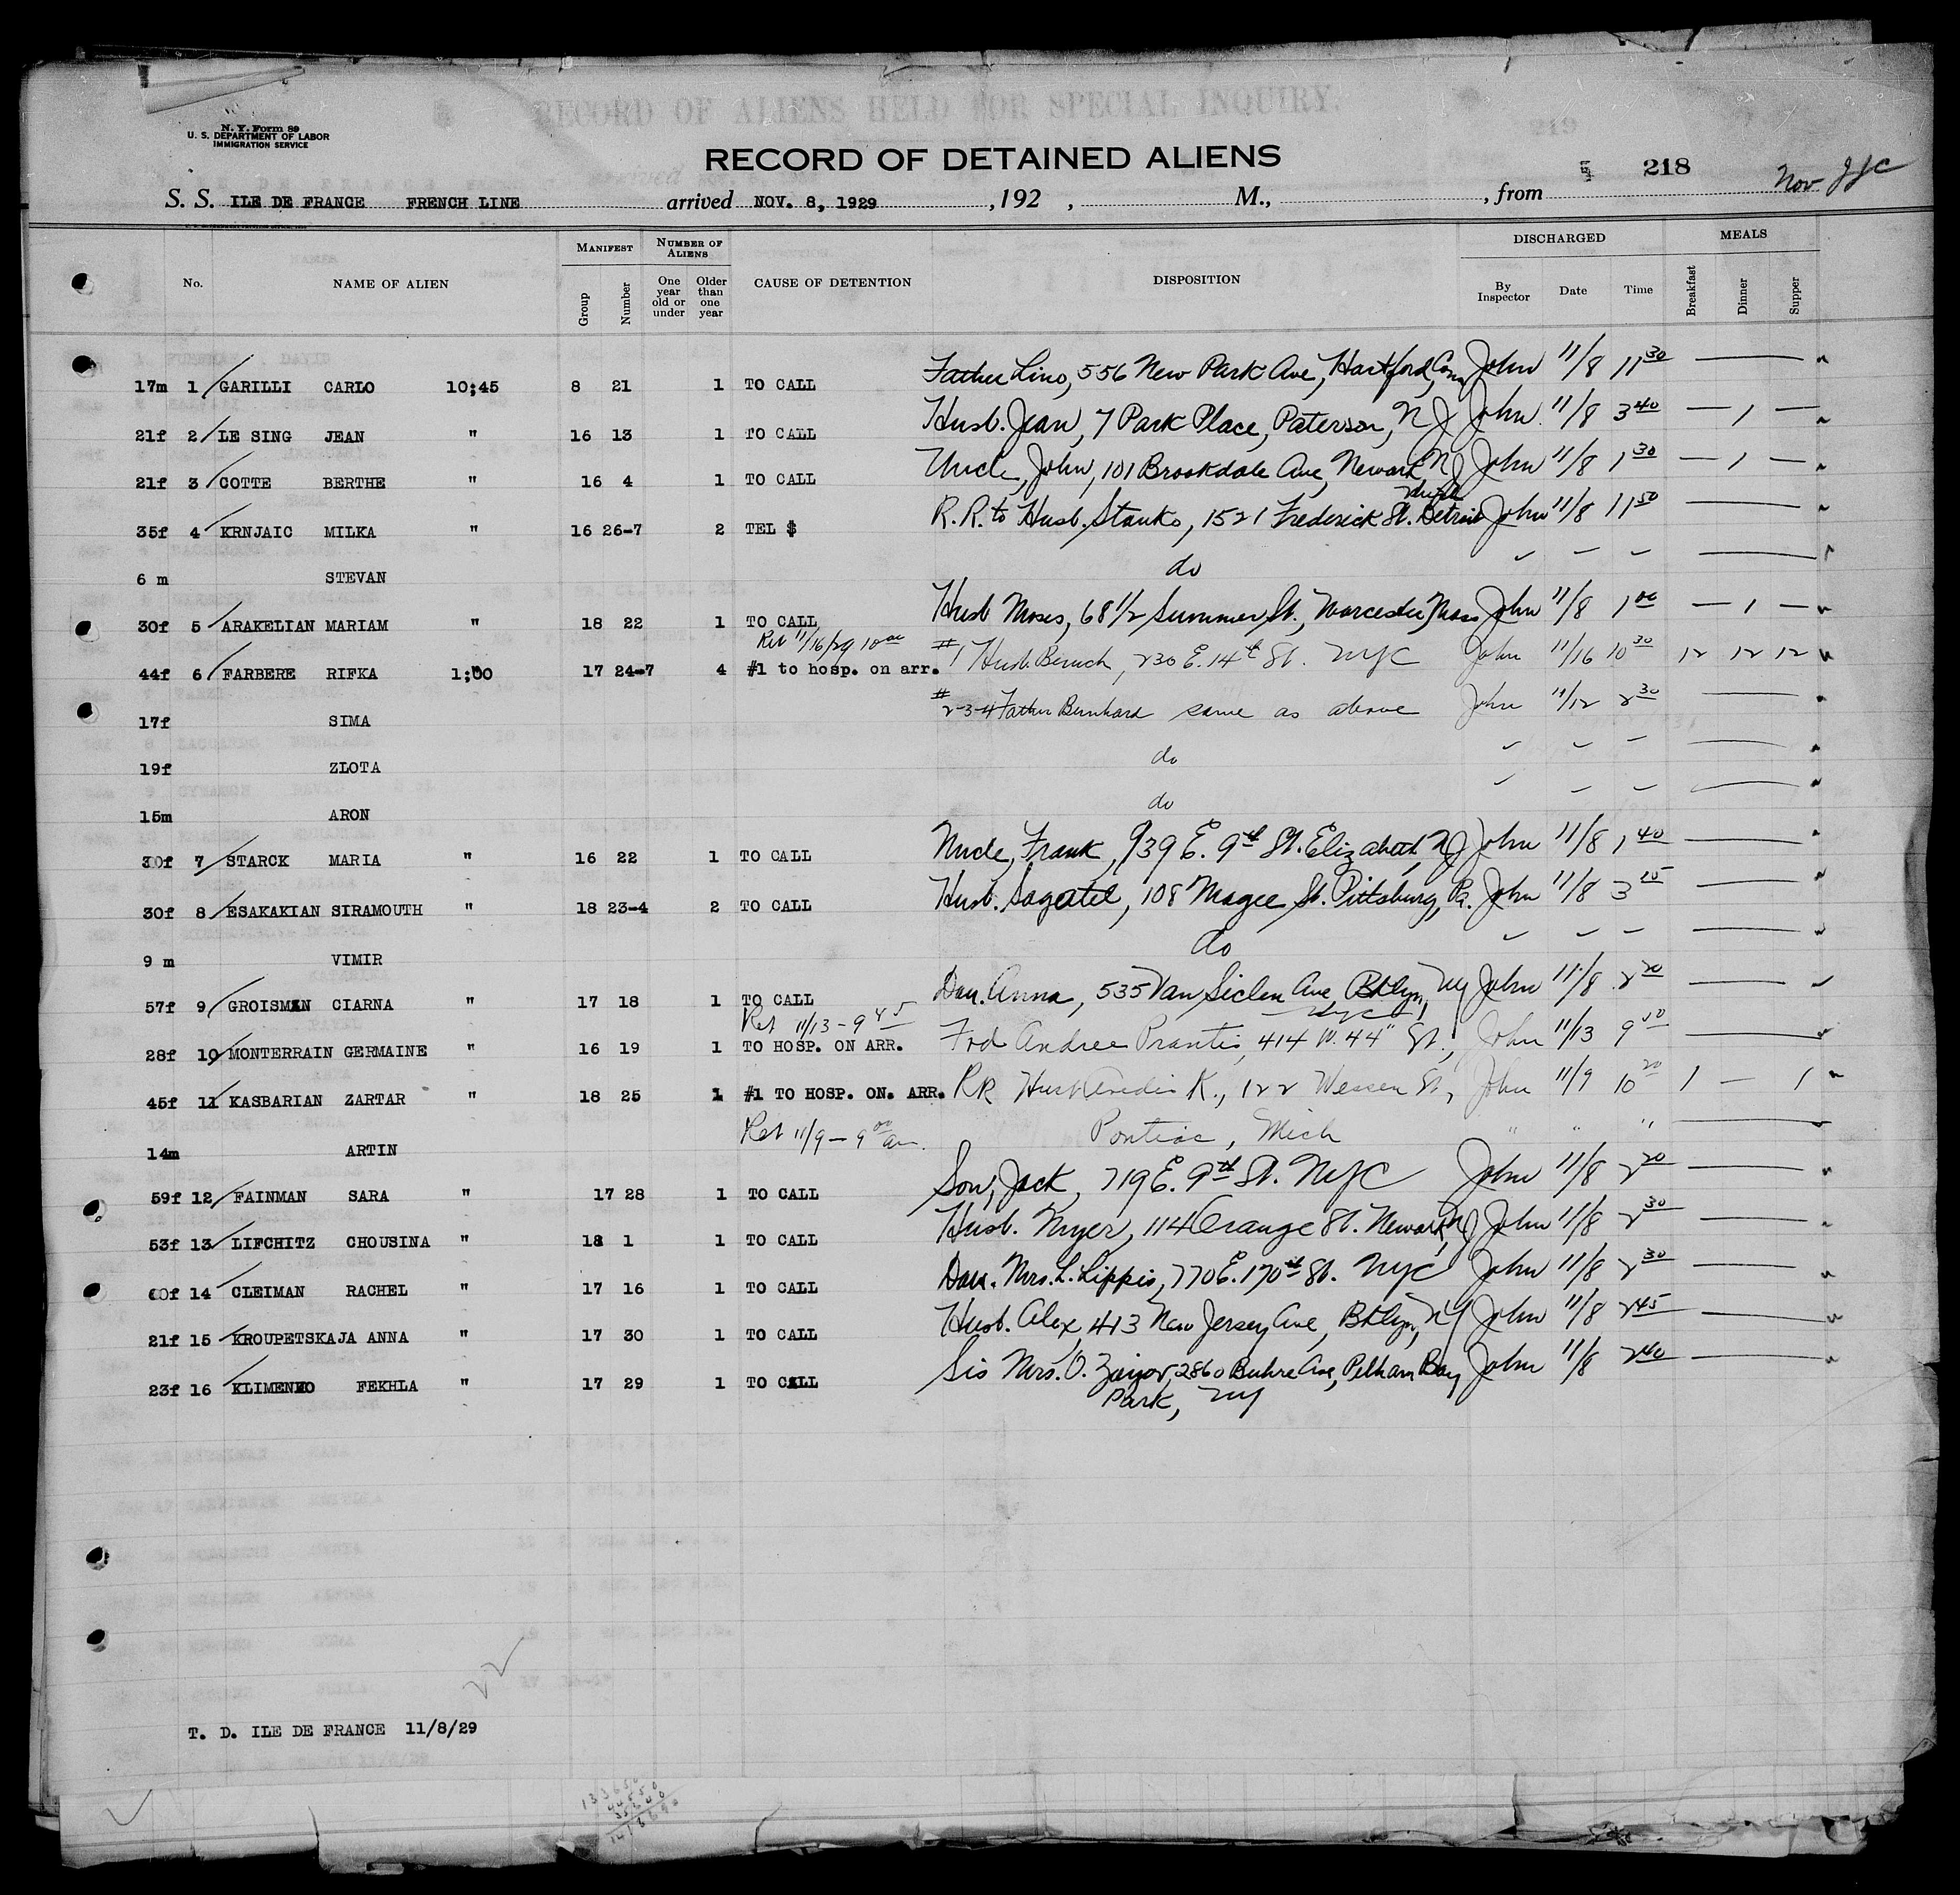 RECORD OF ALIENS HELD FOR SPECIAL INQUIRY.
219
N. Y. Form 89
U. S. DEPARTMENT OF LABOR
IMMIGRATION SERVICE
RECORD OF DETAINED ALIENS
218
S. S. ILE DE FRANCE FRENCH LINE arrived NOV. 8, 1929 , 192 , M., , from Nov
No. NAME OF ALIEN MANIFEST Group Number NUMBER OF ALIENS One year old or under Older than one year CAUSE OF DETENTION DISPOSITION DISCHARGED By Inspector Date Time MEALS Breakfast Dinner Supper
17m 1 GARILLI CARLO 10;45 8 21 1 TO CALL Father Lino, 556 New Park Ave, Hartford, Conn John 11/8 11 30
21f 2 LE SING JEAN " 16 13 1 TO CALL Husb. Jean, 7 Park Place, Paterson, N J John 11/8 3 40 — 1 —
21f 3 COTTE BERTHE " 16 4 1 TO CALL Uncle, John, 101 Brookdale Ave, Newark NJ John 11/8 1 30 — 1 —
35f 4 KRNJAIC MILKA " 16 26-7 2 TEL $ R.R. to Husb. Stanko, 1521 Frederick St. Detroit Mich John 11/8 11 50
6 m STEVAN do
30f 5 ARAKELIAN MARIAM " 18 22 1 TO CALL Husb Moses, 68 1/2 Summer St., Worcester, Mass John 11/8 1 00 — 1 —
Ret 11/16/29 10 00
44f 6 FARBERE RIFKA 1;00 17 24-7 4 #1 to hosp. on arr. #1 Husb. Beruch, 230 E. 14th St. NYC John 11/16 10 30 12 12 12
17f SIMA #2-3-4 Father Bernhard same as above John 11/12 2 30
19f ZLOTA do
15m ARON do
30f 7 STARCK MARIA " 16 22 1 TO CALL Uncle, Frank, 939 E. 9th St. Elizabeth, NJ John 11/8 1 40
30f 8 ESAKAKIAN SIRAMOUTH " 18 23-4 2 TO CALL Husb. Sagatel, 108 Magee St. Pittsburg, Pa. John 11/8 3 15
9 m VIMIR do
57f 9 GROISMAN CIARNA " 17 18 1 TO CALL Dau. Anna, 535 Van Siclen Ave, Bklyn, NY John 11/8 2 20
Ret 11/13 - 9 45 NYC
28f 10 MONTERRAIN GERMAINE " 16 19 1 TO HOSP. ON ARR. Frd Andree Prantis, 414 W. 44" St., John 11/13 9 50
45f 11 KASBARIAN ZARTAR " 18 25 1 #1 TO HOSP. ON. ARR. RR Husb Avedis K., 122 Wessen St, John 11/9 10 20 1 — 1
14m ARTIN Ret 11/9 - 9 00 am. Pontiac, Mich " " "
59f 12 FAINMAN SARA " 17 28 1 TO CALL Son, Jack, 719 E. 9th St. NYC John 11/8 2 20
53f 13 LIFCHITZ CHOUSINA " 18 1 1 TO CALL Husb. Myer, 114 Orange St. Newark, NJ John 11/8 2 30
60f 14 CLEIMAN RACHEL " 17 16 1 TO CALL Dau. Mrs. L. Lippis, 770 E. 170th St. NYC John 11/8 2 30
21f 15 KROUPETSKAJA ANNA " 17 30 1 TO CALL Husb. Alex, 413 New Jersey Ave, Bklyn, NY John 11/8 2 45
23f 16 KLIMENKO FEKHLA " 17 29 1 TO CALL Sis Mrs. O. Zaijor, 2860 Buhre Ave, Pelham Bay John 11/8 2 40
Park, NY
T. D. ILE DE FRANCE 11/8/29